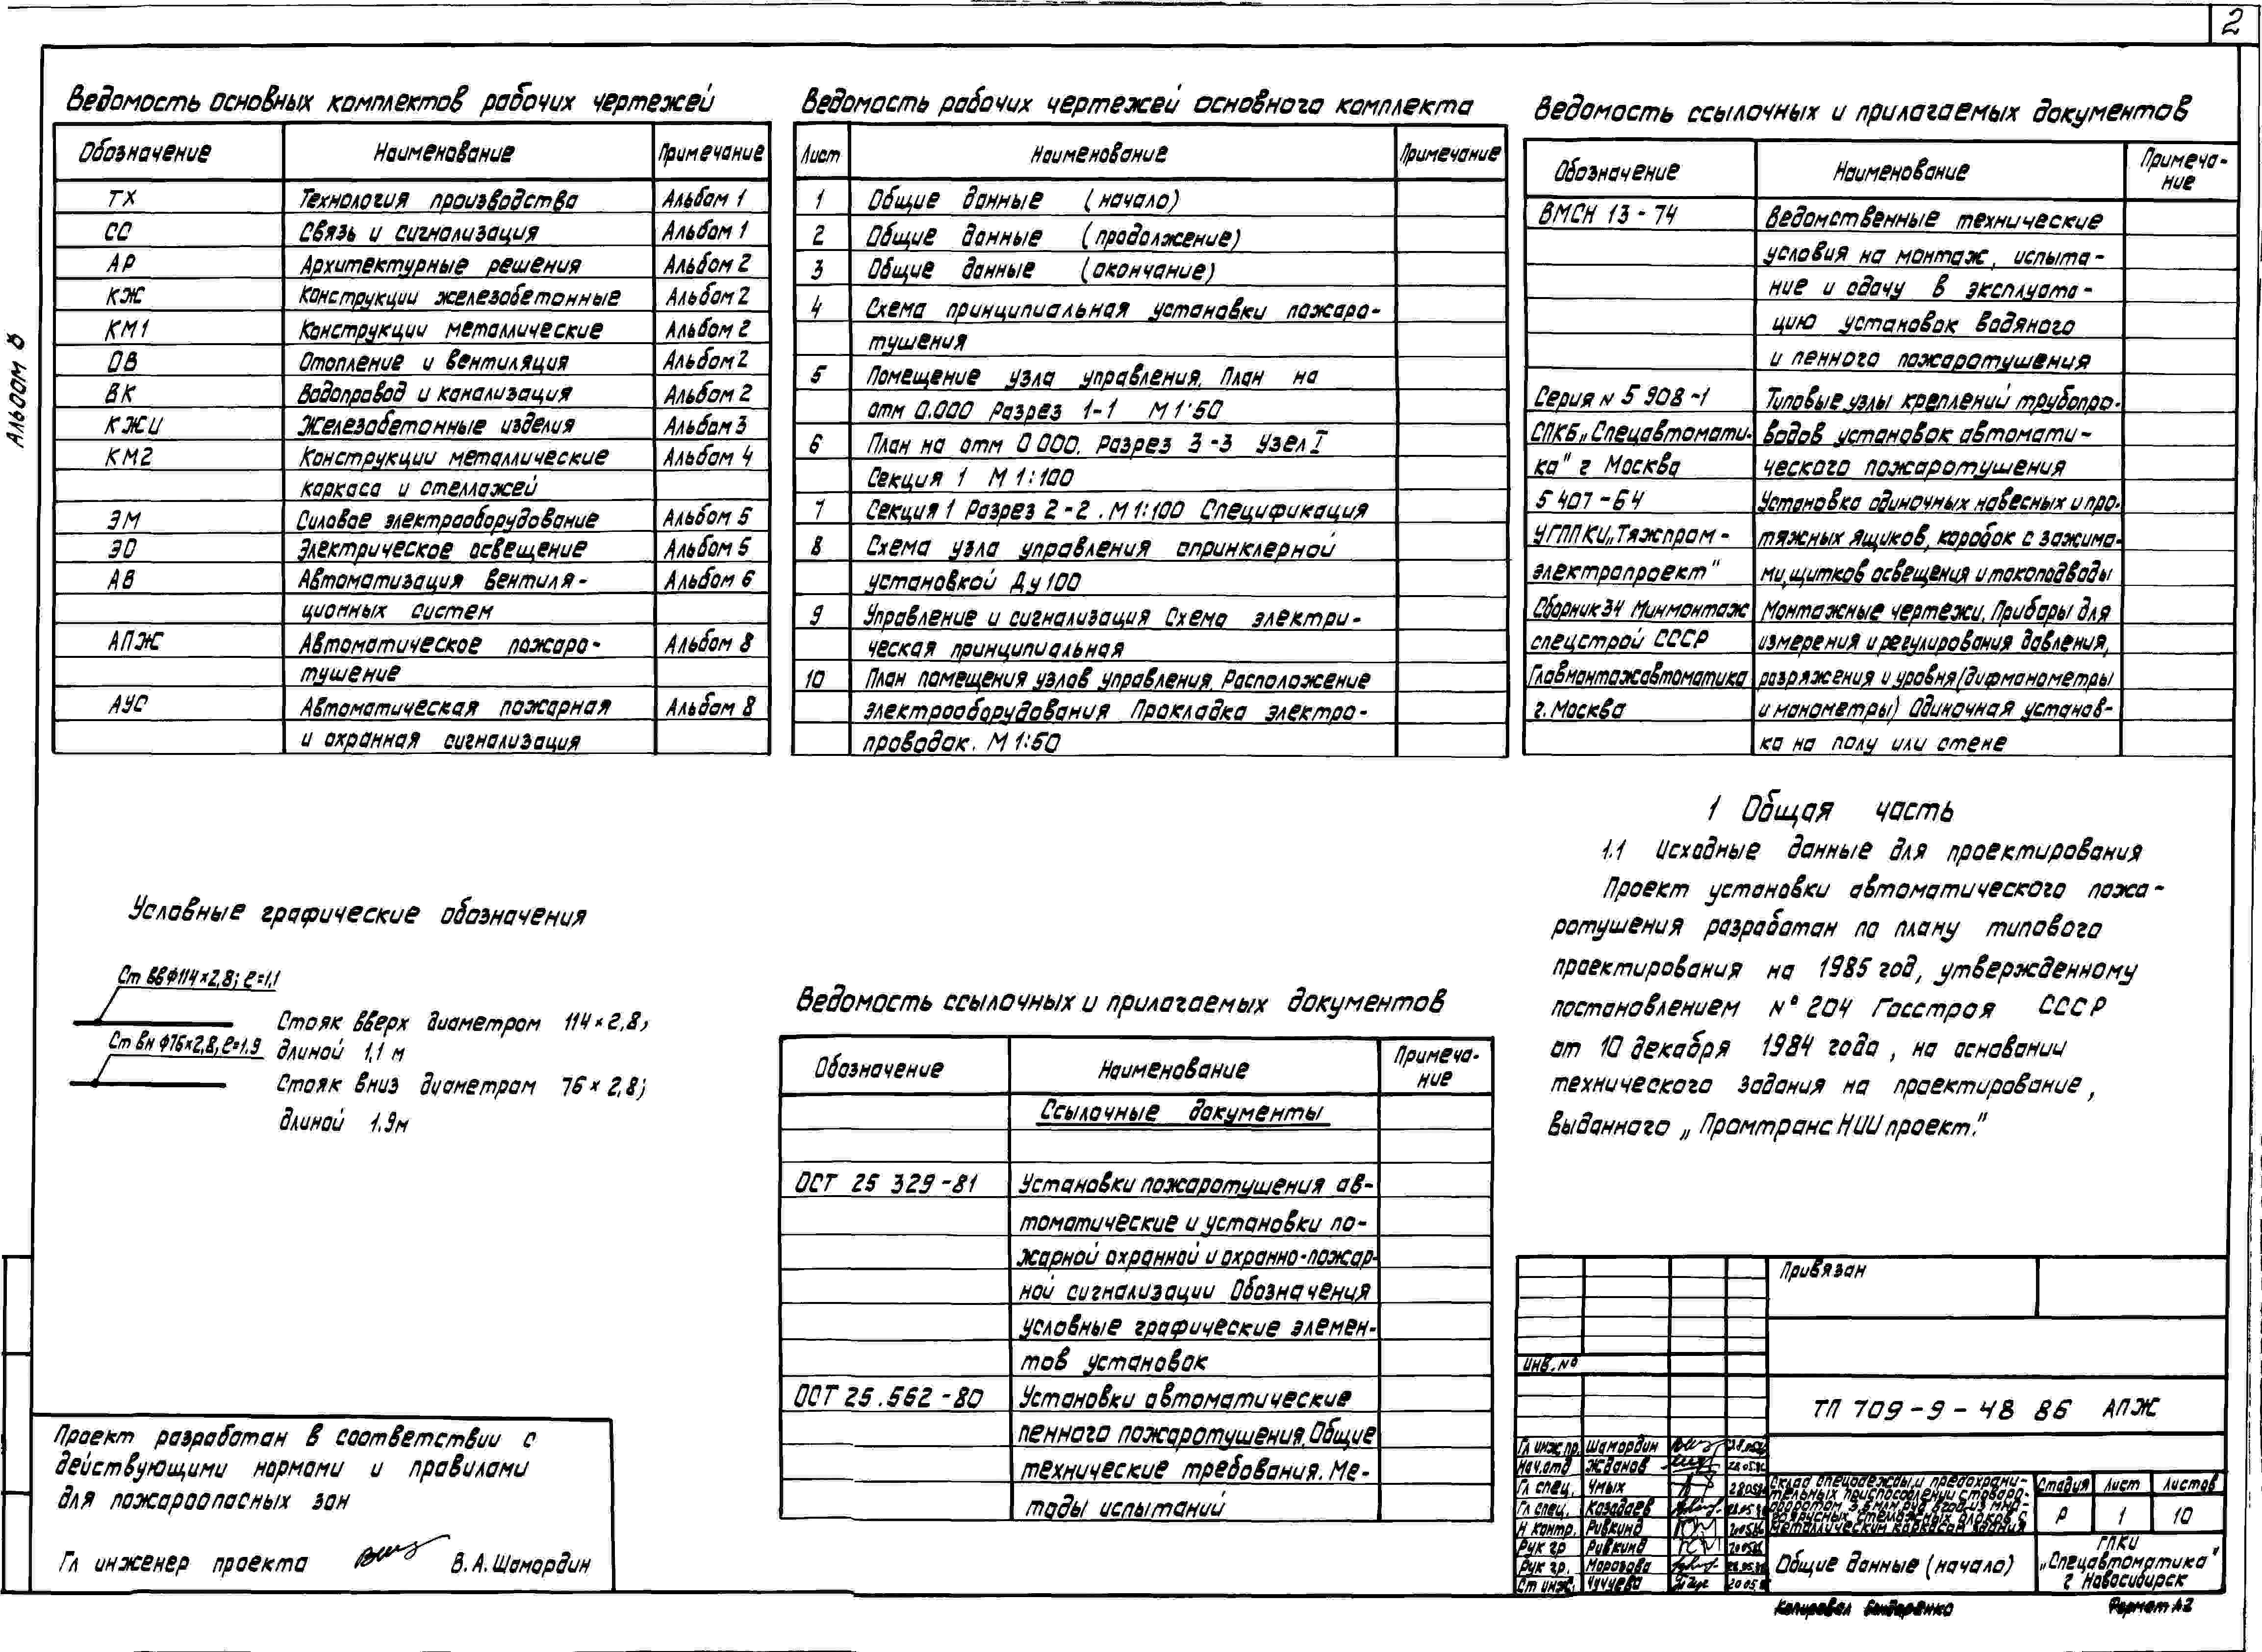 2
Альбом 8
Ведомость основных комплектов рабочих чертежей
Обозначение Наименование Примечание
ТХ Технология производства Альбом 1
СС Связь и сигнализация Альбом 1
АР Архитектурные решения Альбом 2
КЖ Конструкции железобетонные Альбом 2
КМ1 Конструкции металлические Альбом 2
ОВ Отопление и вентиляция Альбом 2
ВК Водопровод и канализация Альбом 2
КЖИ Железобетонные изделия Альбом 3
КМ2 Конструкции металлические Альбом 4
каркаса и стеллажей
ЭМ Силовое электрооборудование Альбом 5
ЭО Электрическое освещение Альбом 5
АВ Автоматизация вентиля-Альбом 6
ционных систем
АПЖ Автоматическое пожаро- Альбом 8
тушение
АУС Автоматическая пожарная Альбом 8
и охранная сигнализация
Ведомость рабочих чертежей основного комплекта
Лист Наименование Примечание
1 Общие данные (начало)
2 Общие данные (продолжение)
3 Общие данные (окончание)
4 Схема принципиальная установки пожаро-
тушения
5 Помещение узла управления. План на
отм 0.000 Разрез 1-1 М 1:50
6 План на отм 0 000. Разрез 3-3 Узел I
Секция 1 М 1:100
7 Секция 1 Разрез 2-2. М 1:100 Спецификация
8 Схема узла управления спринклерной
установкой Ду 100
9 Управление и сигнализация Схема электри-
ческая принципиальная
10 План помещения узлов управления. Расположение
электрооборудования Прокладка электро-
проводок. М 1:50
Ведомость ссылочных и прилагаемых документов
Обозначение Наименование Примеча-
ние
ВМСН 13-74 Ведомственные технические
условия на монтаж, испыта-
ние и сдачу в эксплуата-
цию установок водяного
и пенного пожаротушения
Серия N 5 908-1 Типовые узлы креплений трубопро-
СПКБ „Спецавтомати- водов установок автомати-
ка" г Москва ческого пожаротушения
5 407-64 Установка одиночных навесных и про-
УГППКИ „Тяжпром- тяжных ящиков, коробок с зажима-
электропроект" ми, щитков освещения и токоподводы
Сборник 34 Минмонтаж Монтажные чертежи. Приборы для
спецстрой СССР измерения и регулирования давления,
Главмонтажавтоматика разряжения и уровня (дифманометры
г. Москва и манометры) Одиночная установ-
ка на полу или стене
Условные графические обозначения
Ст вв ф114×2,8; ℓ=1,1
Стояк вверх диаметром 114×2,8,
длиной 1,1 м
Ст вн ф76×2,8, ℓ=1.9
Стояк вниз диаметром 76×2,8;
длиной 1.9м
Ведомость ссылочных и прилагаемых документов
Обозначение Наименование Примеча-
ние
Ссылочные документы
ОСТ 25 329-81 Установки пожаротушения ав-
томатические и установки по-
жарной охранной и охранно-пожар-
ной сигнализации Обозначения
условные графические элемен-
тов установок
ОСТ 25.562-80 Установки автоматические
пенного пожаротушения. Общие
технические требования. Ме-
тоды испытаний
1 Общая часть
1.1 Исходные данные для проектирования
Проект установки автоматического пожа-
ротушения разработан по плану типового
проектирования на 1985 год, утвержденному
постановлением № 204 Госстроя СССР
от 10 декабря 1984 года, на основании
технического задания на проектирование,
выданного „Промтранс НИИ проект."
Проект разработан в соответствии с
действующими нормами и правилами
для пожароопасных зон
Гл инженер проекта В.А. Шамордин
Привязан
Инв. №
ТП 709-9-48 86 АПЖ
Гл инж.пр. Шамордин
Нач.отд Жданов
Гл спец. Чмых
Гл спец. Казадаев
Н контр. Ривкинд
Рук гр Ривкинд
Рук гр. Морозова
Ст инж. Чучуева
Склад спецодежды и предохрани-
тельных приспособлений с товаро-
оборотом 3.5 млн. руб в год из мно-
гоярусных стеллажных блоков с
металлическим каркасом здания
Стадия Лист Листов
Р 1 10
Общие данные (начало)
ГПКИ
„Спецавтоматика"
г Новосибирск
Копировал Бондаренко Формат А2